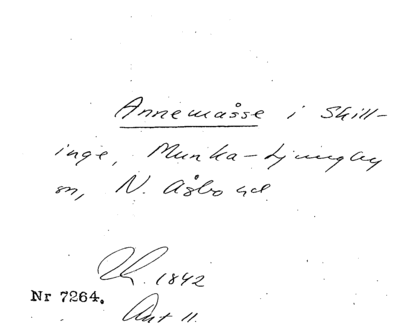 Annemåsse i Skill-
inge, Munka-Ljungby
sn, N. Åsbo hd
Lk. 1842
Nr 7264.
Ant 11.